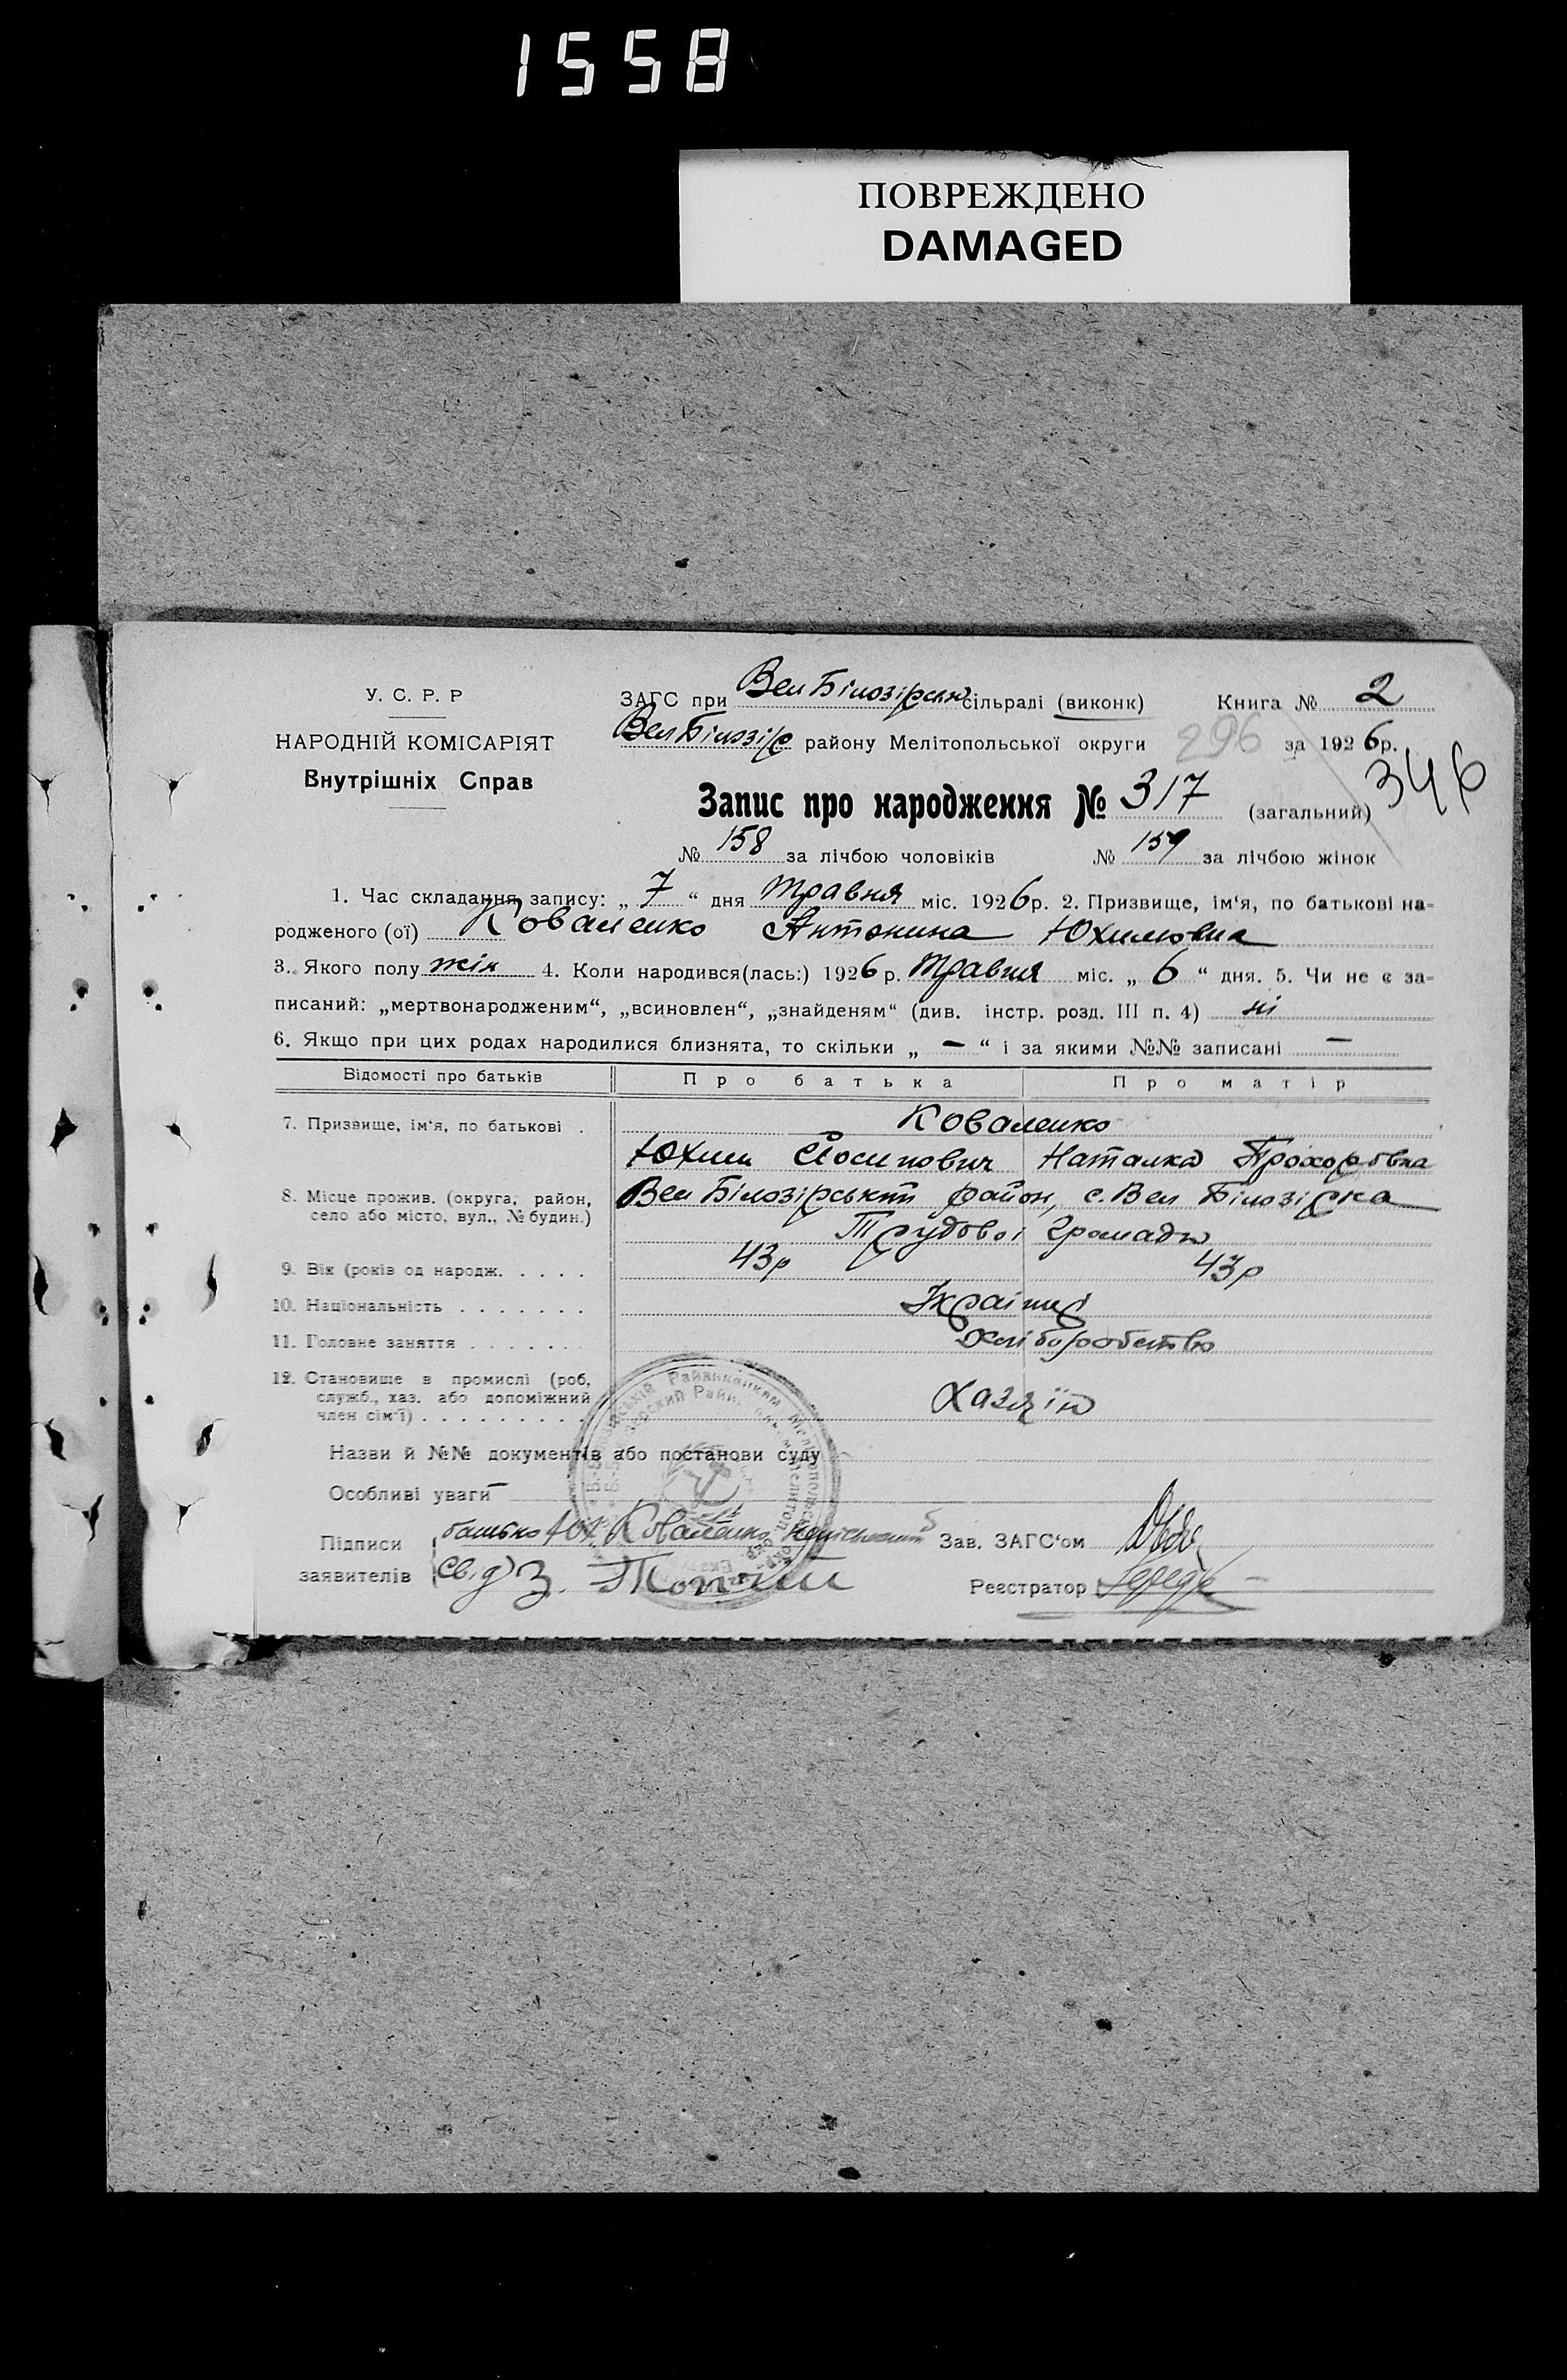 1558
ПОВРЕЖДЕНО
DAMAGED
У. С. Р. Р
НАРОДНІЙ КОМІСАРІЯТ
Внутрішніх Справ
ЗАГС при Вел Білозірськ сільраді (виконк) Книга № 2
Вел Білозір району Мелітопольської округи 296 за 1926р.
346
Запис про народження № 317 (загальний)
№ 158 за лічбою чоловіків № 159 за лічбою жінок
1. Час складання запису: „ 7 “ дня Травня міс. 1926р. 2. Призвище, ім‘я, по батькові на-
родженого (ої) Коваленко Антонина Юхимовна
3. Якого полу жін 4. Коли народився(лась:) 1926 р. Травня міс. „ 6 “ дня. 5. Чи не є за-
писаний: „мертвонародженим“, „всиновлен“, „знайденям“ (див. інстр. розд. III п. 4) ні
6. Якщо при цих родах народилися близнята, то скільки „ — “ і за якими №№ записані —
Відомості про батьків Про батька Про матір
7. Призвище, ім‘я, по батькові . Коваленко
Юхим Йосипович Наталка Прохоровна
8. Місце прожив. (округа, район, Вел Білозірський район, с. Вел Білозірка
село або місто, вул., № будин.) Трудової громади
9. Вік (років од народж. . . . . 43р 43р
10. Національність . . . . . . . Українці
11. Головне заняття . . . . . . . Хліборобство
12. Становище в промислі (роб, 
служб., хаз. або допоміжний Хазяїн
член сім‘ї) . . . . . . . . .
Назви й №№ документів або постанови суду
Особливі уваги —
Підписи батько Юх Коваленко Зав. ЗАГС‘ом
заявителів Свід) З. Реєстратор